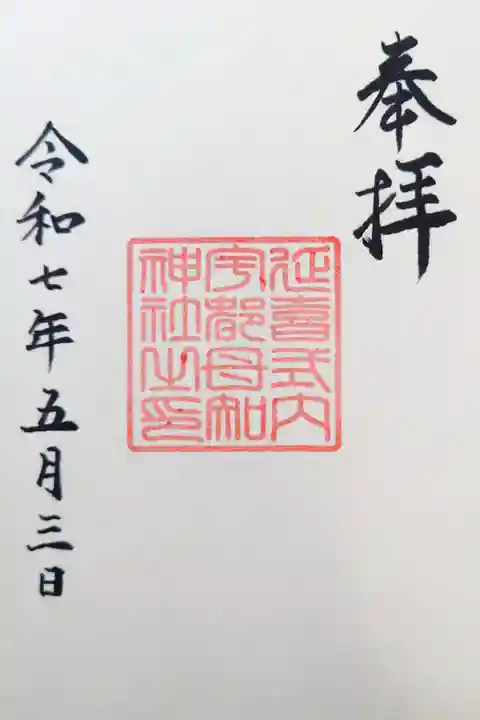 奉拝
延喜式内
宇都母知
神社之印
令和七年五月三日